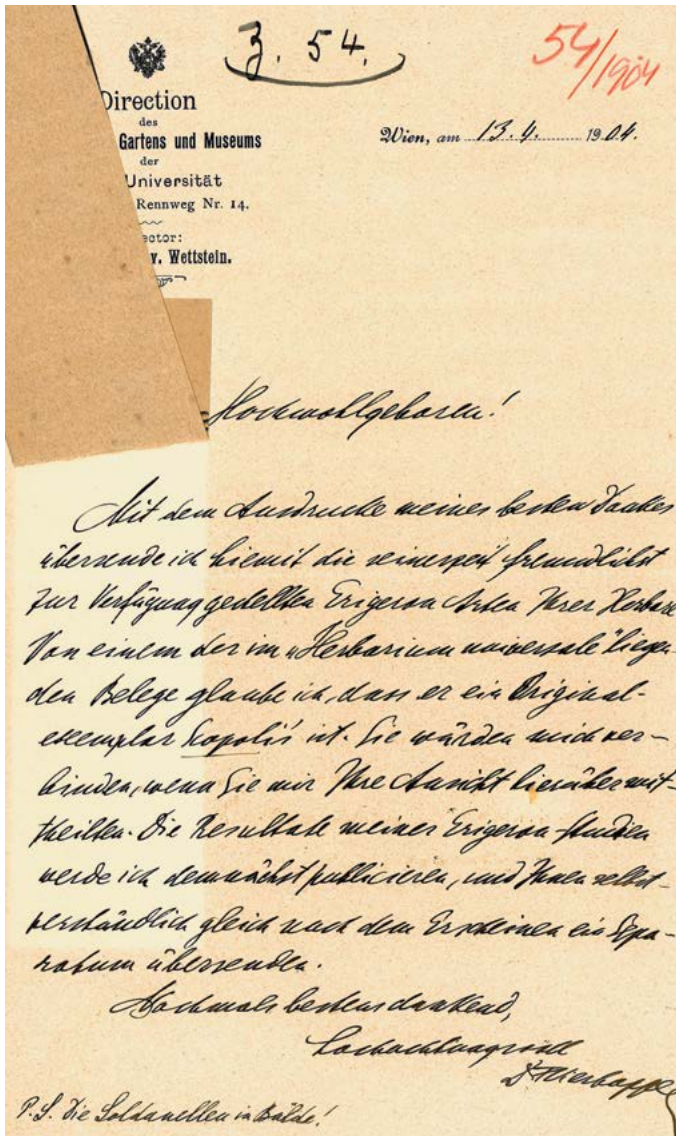 Z. 54.
54/1904
Direction
des
Gartens und Museums
der
Universität
Rennweg Nr. 14.
ector:
v. Wettstein.
Wien, am 13. 4. 1904.
Hochwohlgeboren!
Mit dem Ausdrucke meines besten Dankes
übersende ich hiemit die seinerzeit freundlichst
zur Verfügung gestellten Erigeron Arten Ihrer Herbare
Von einem der im „Herbarium universale" liegen-
den Belege glaube ich, dass er ein Original-
exemplar Scopoli's ist. Sie würden mich ver-
binden, wenn Sie mir Ihre Ansicht hierüber mit-
theilten. Die Resultate meiner Erigeron-Studien
werde ich demnächst publicieren, und Ihnen selbst-
verständlich gleich nach dem Erscheinen ein Sepa-
ratum übersenden.
Nochmals bestens dankend,
hochachtungsvoll
Dr Vierhapper
P.S. Die Soldanellen in Bälde!